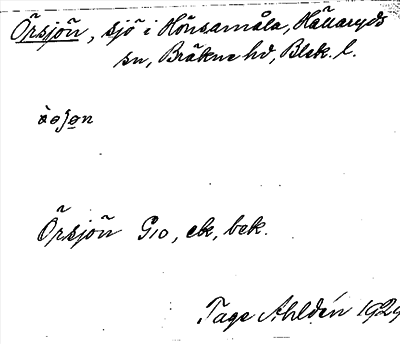 Örsjön, sjö i Hönsamåla, Hällaryds
sn, Bräkne hd, Blek. l.
Örsjön G10, ek, bek.
Tage Ahldén 1929